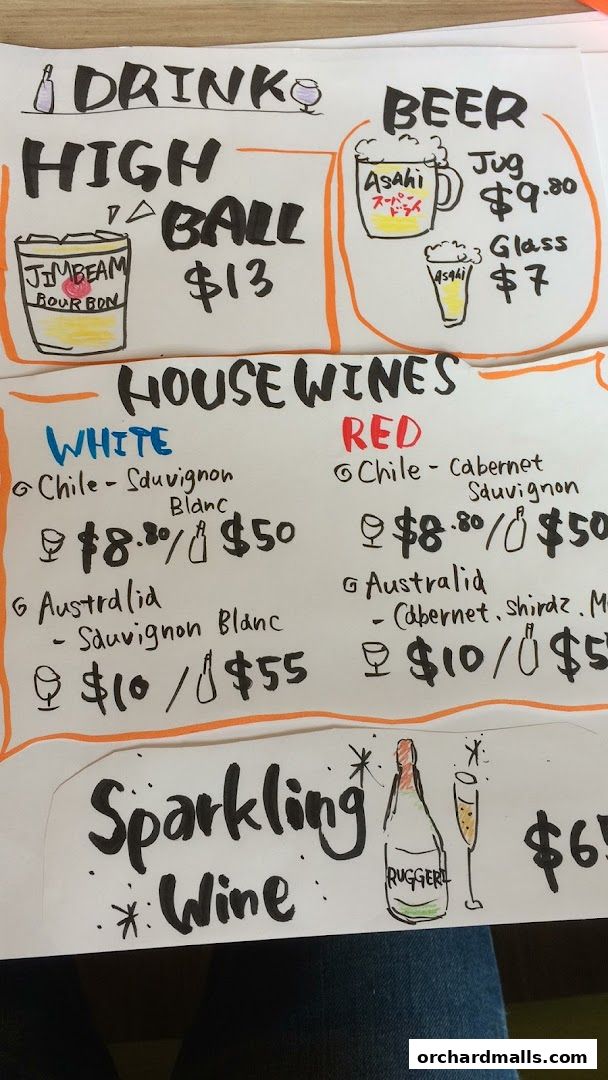 DRINK
HIGH
BALL
$13
JIMBEAM
BOURBON
BEER
Asahi
スーパー
ドライ
Jug
$9.80
Glass
$7
Asahi
HOUSE WINES
WHITE
Chile - Sauvignon
Blanc
$8.80 / $50
Australia
- Sauvignon Blanc
$10 / $55
RED
Chile - Cabernet
Sauvignon
$8.80 / $50
Australia
- Cabernet. Shiraz. M
$10 / $5
Sparkling
Wine
RUGGERI
$6
orchardmalls.com